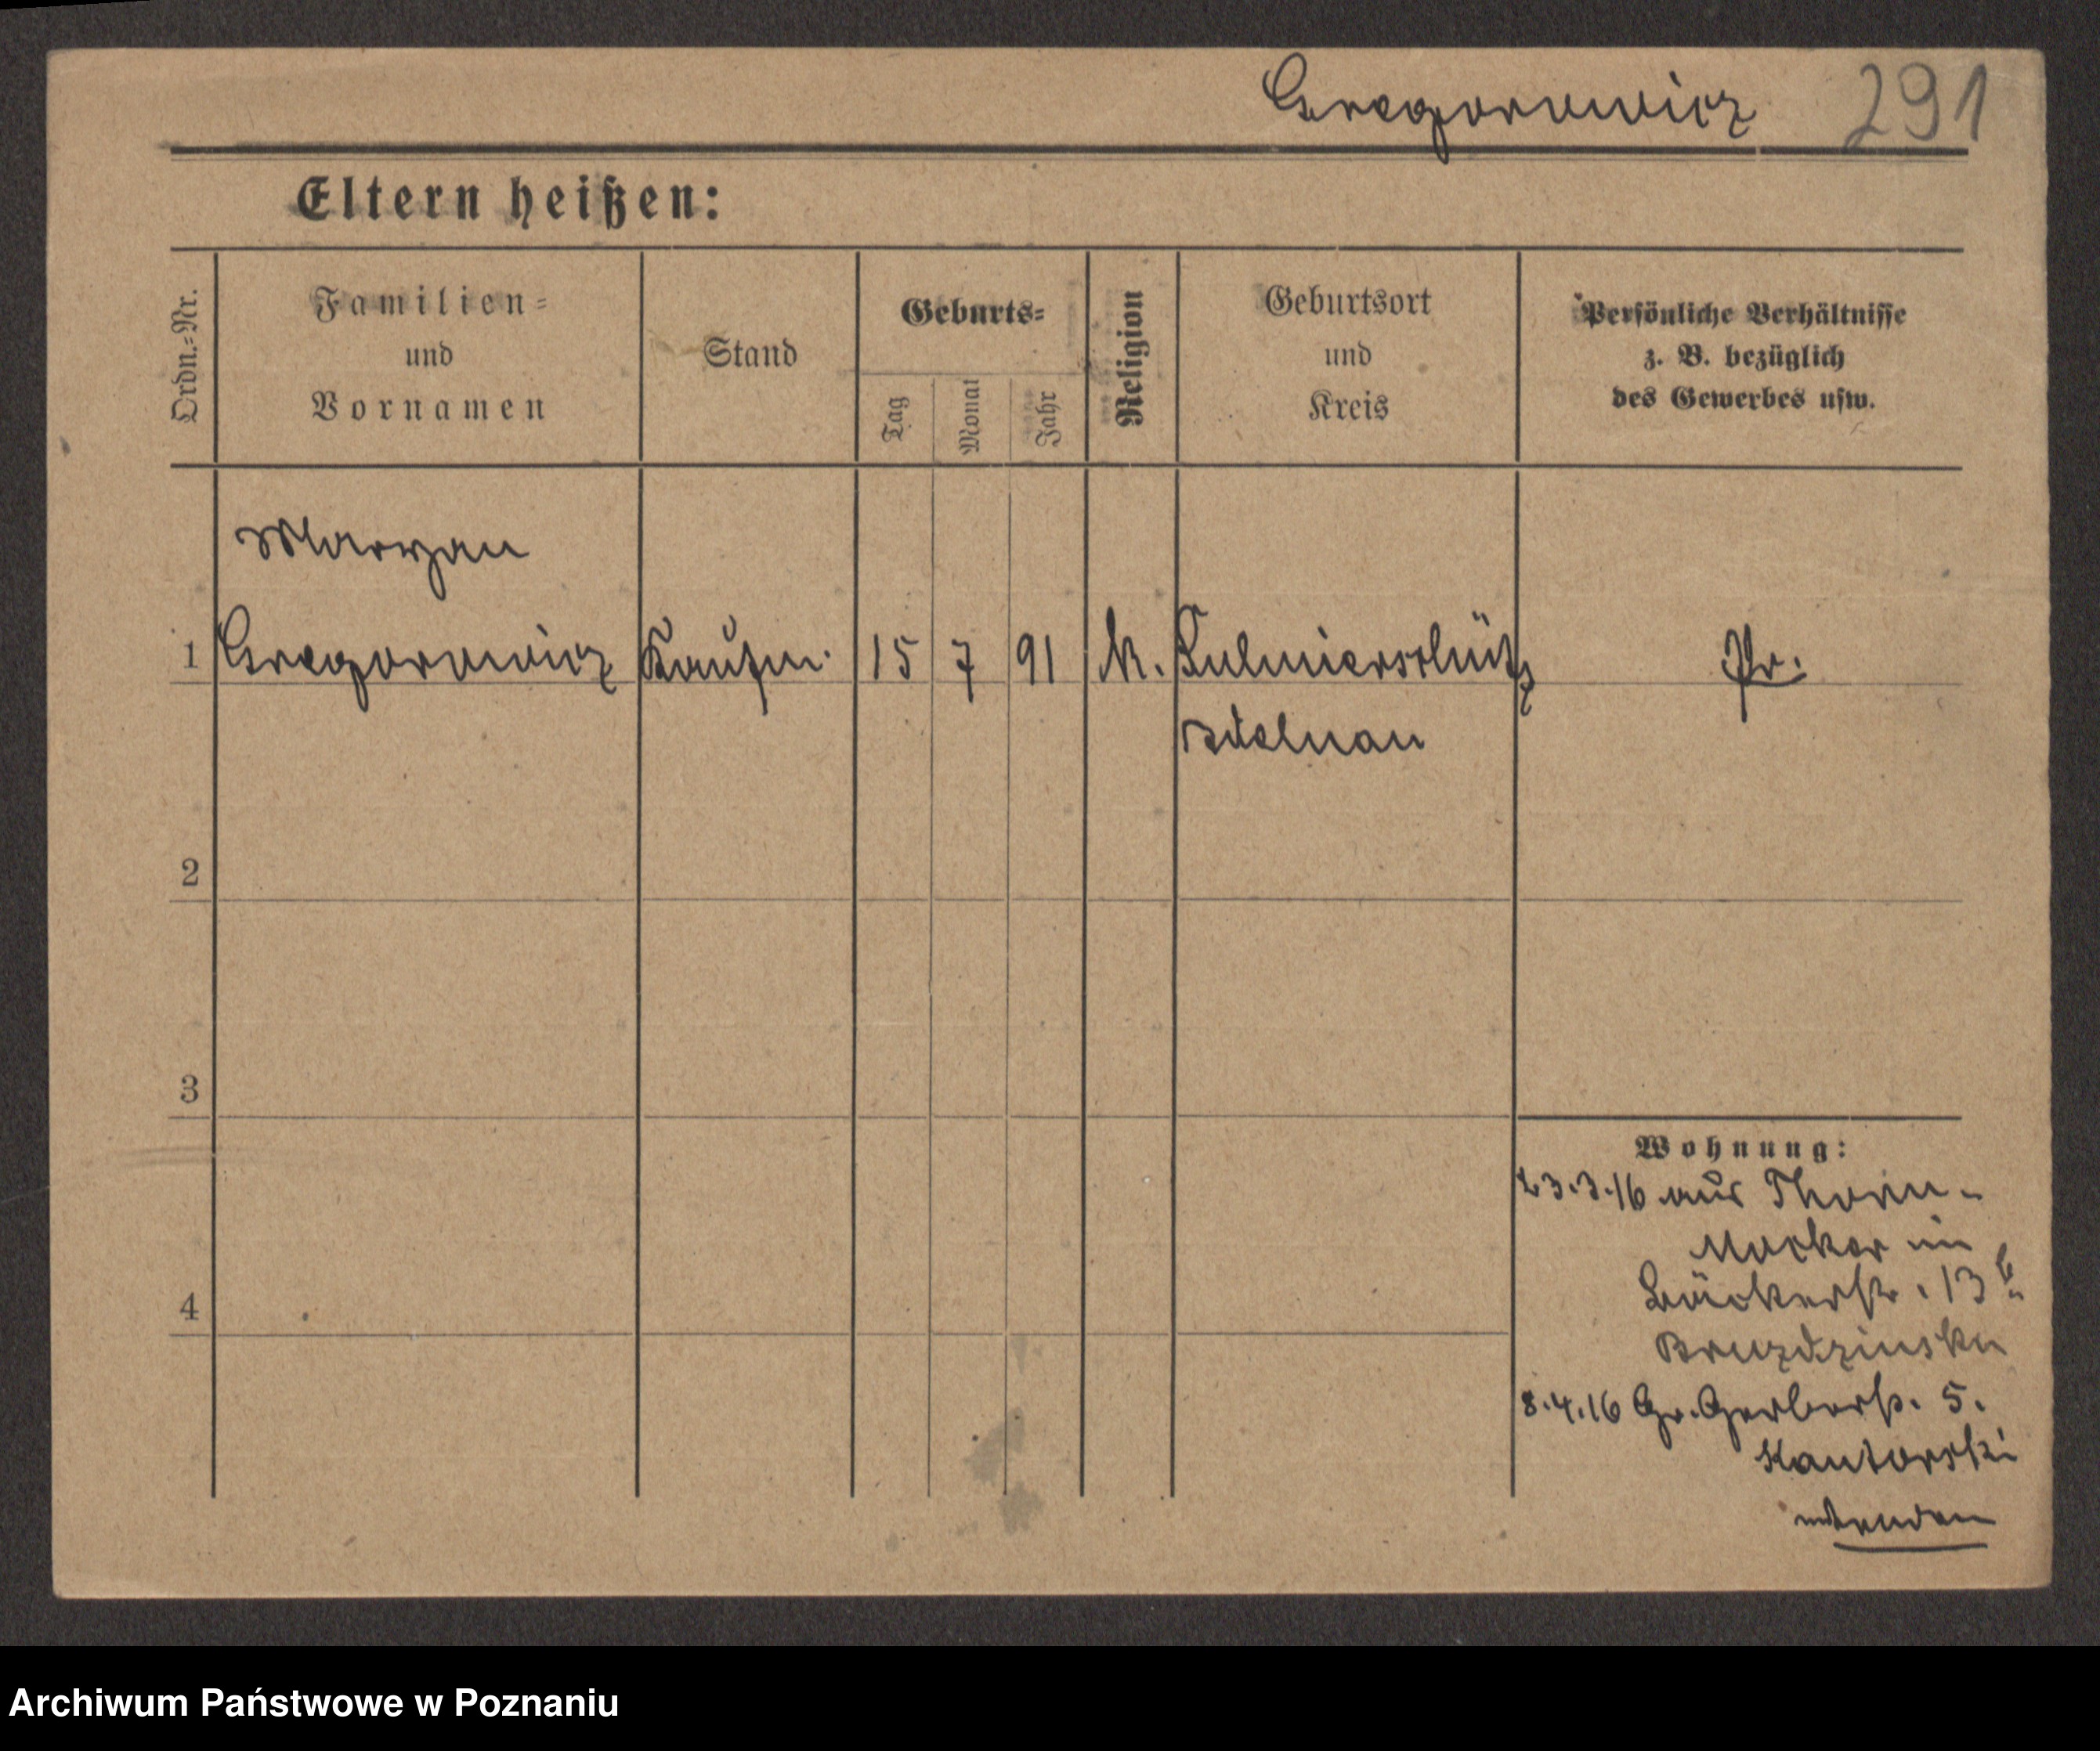 Gregorowicz 291
Eltern heißen:
Ordn.-Nr.
Familien-
und
Vornamen
Stand
Geburts-
Tag
Monat
Jahr
Religion
Geburtsort
und
Kreis
Persönliche Verhältnisse
z. B. bezüglich
des Gewerbes usw.
Maryan
1 Gregorowicz Kaufm. 15 7 91 k. Kulmierschütz Pr.
Adelnau
2
3
4
Wohnung:
23.3.16 aus Thorn-
Mocker in
Bäckerstr. 13 b.
Bruzdzinska
8.4.16 Gr. Gerberstr. 5.
Kantorski
Archiwum Państwowe w Poznaniu